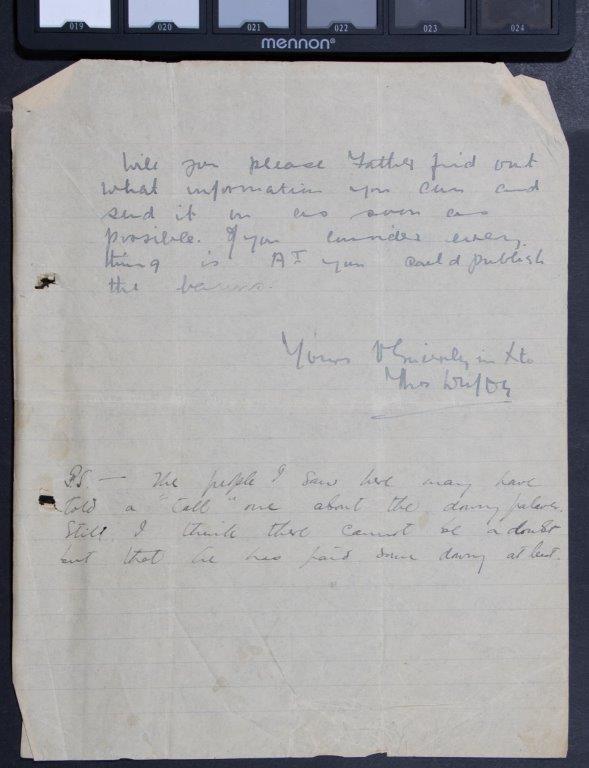 019 020 021 022 023 024
mennon®
Will you please Father find out
what information you can and
send it on as soon as
possible. If you consider every
thing is A1 you could publish
the banns.
Yours V Sincerely in Xto
Thos
P.S. — The people I saw here may have
told a "tall" one about the dowry palaver.
Still I think there cannot be a doubt
but that he has paid some dowry at least.